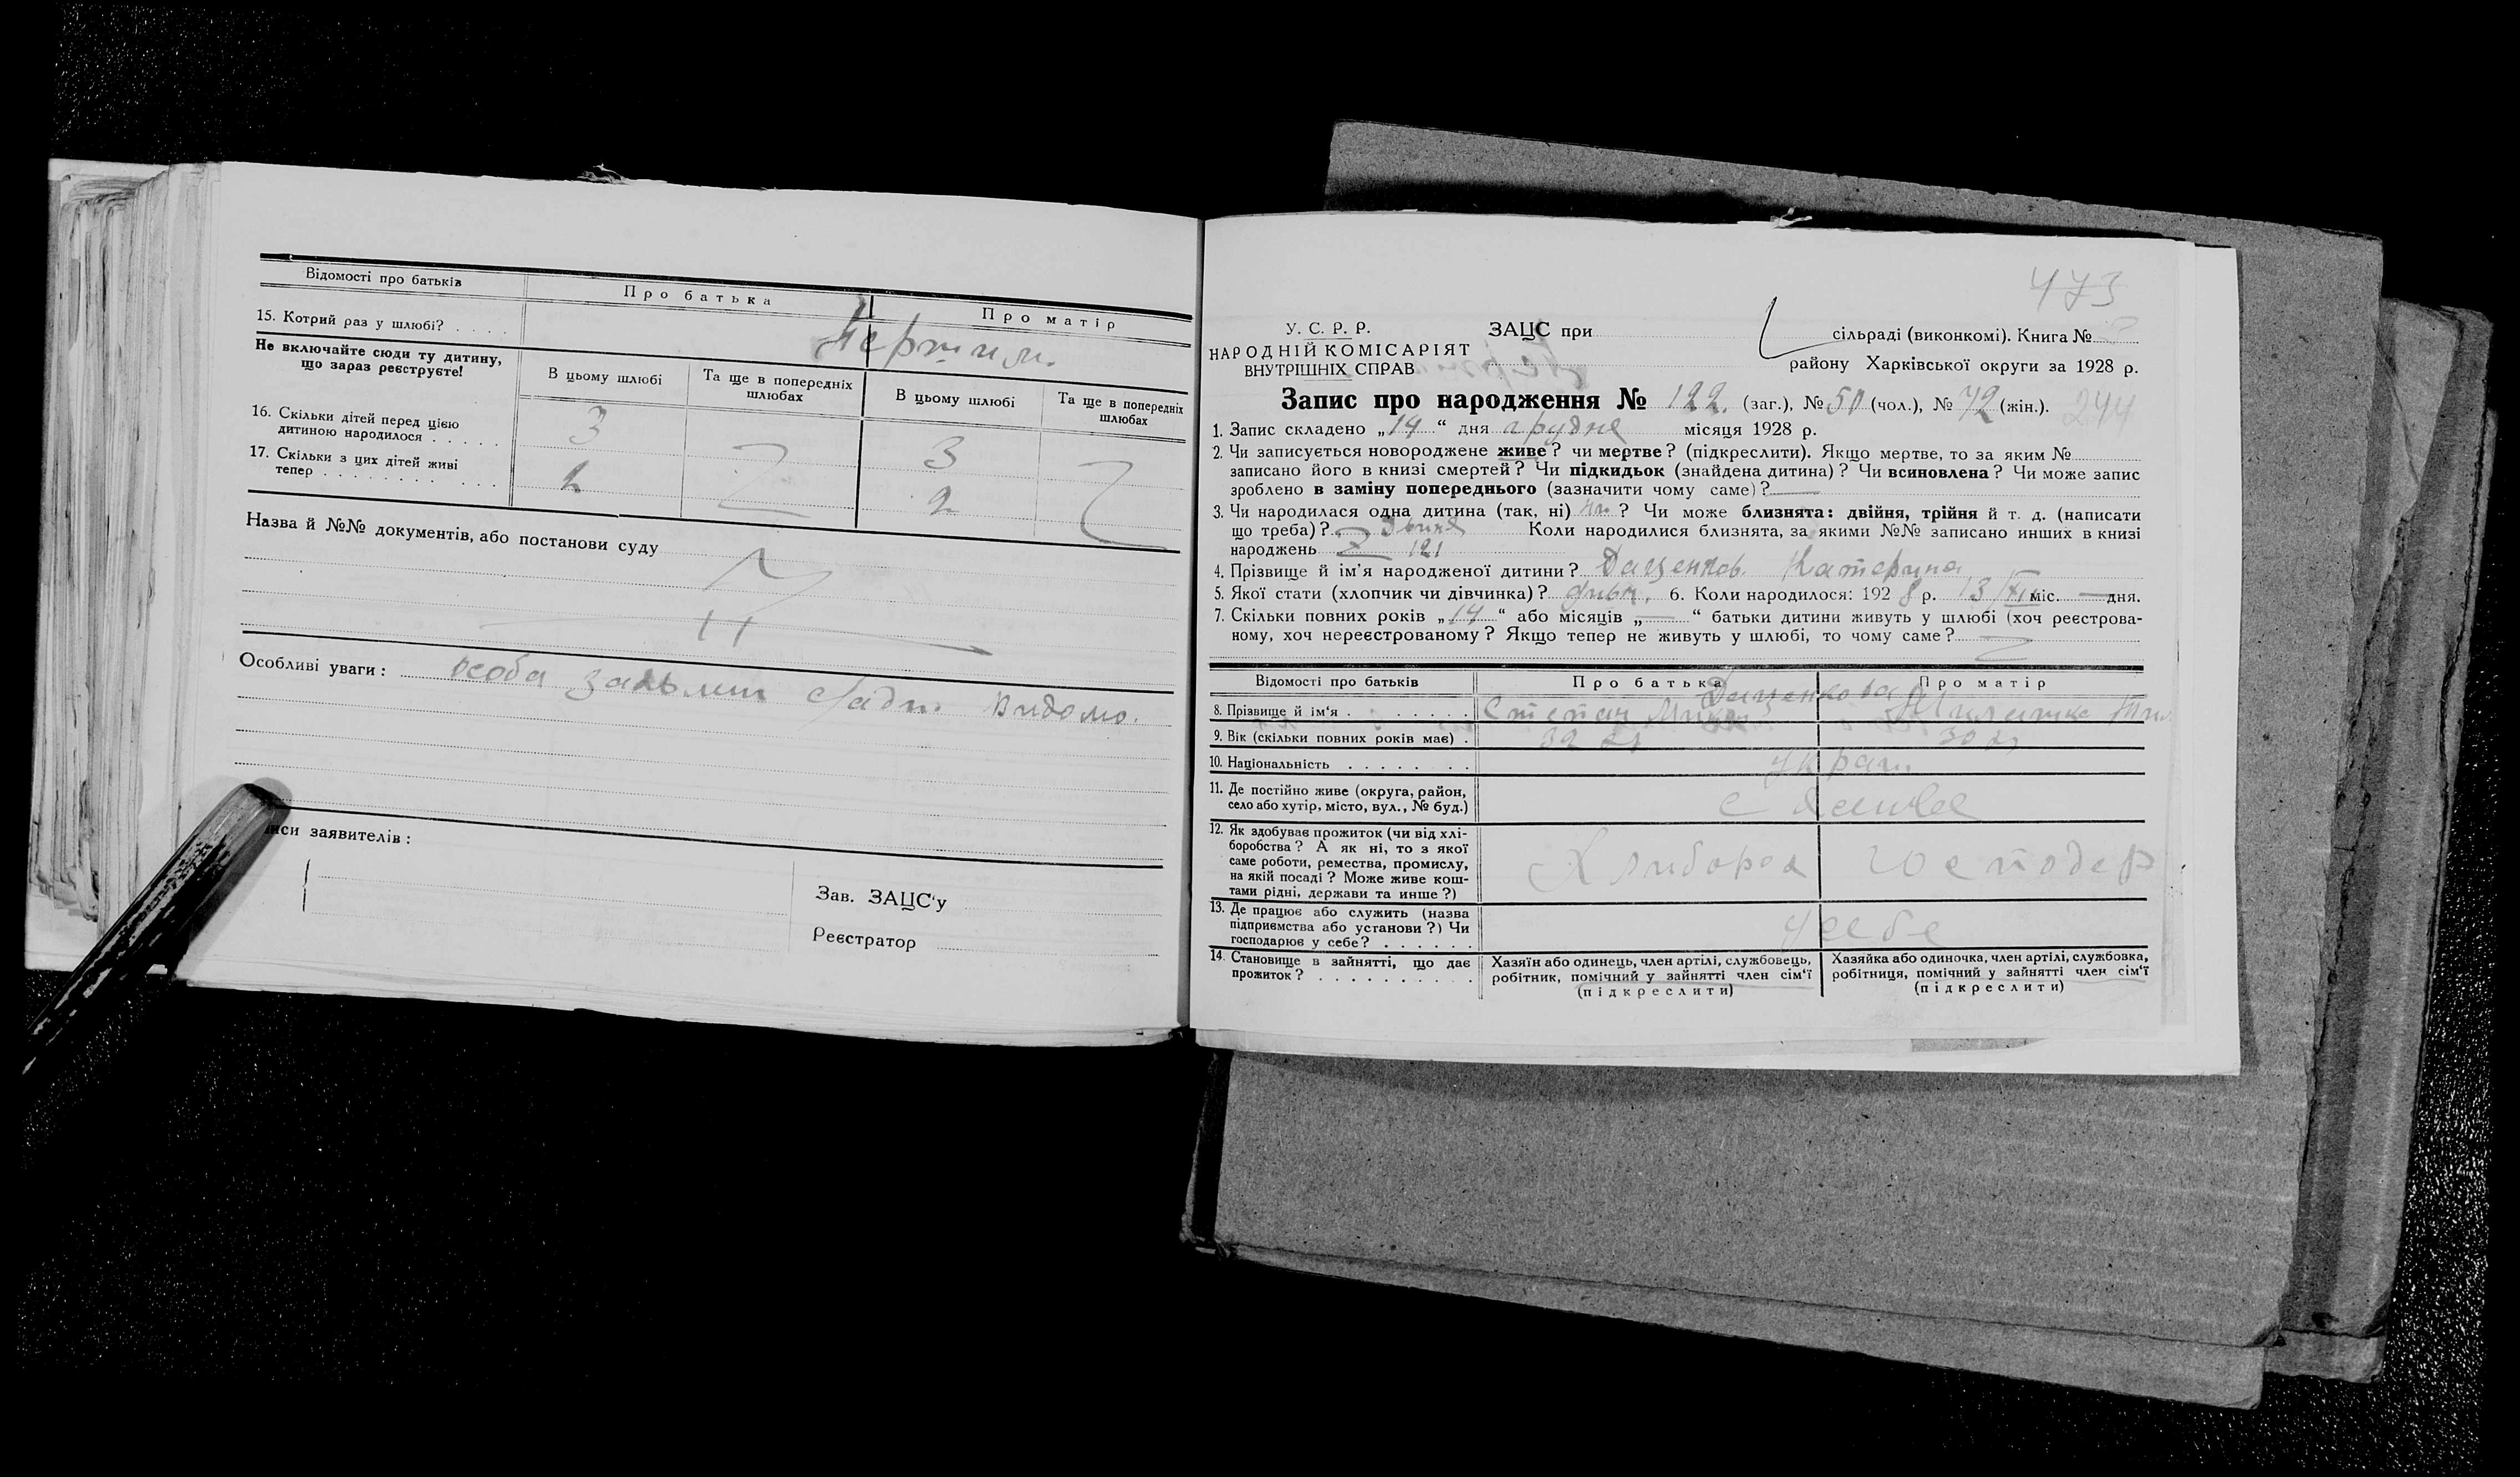 Відомості про батьків
Про батька
Про матір
15. Котрий раз у шлюбі? . . . .
Не включайте сюди ту дитину,
що зараз реєструєте!
В цьому шлюбі
Та ще в попередніх
шлюбах
В цьому шлюбі
Та ще в попередніх
шлюбах
16. Скільки дітей перед цією
дитиною народилося . . . . .
3
3
17. Скільки з цих дітей живі
тепер . . . . . . . . . . .
2
2
Назва й №№ документів, або постанови суду
Особливі уваги: особа Видомо.
заявителів:
Зав. ЗАЦС'у
Реєстратор
473
У. С. Р. Р.
НАРОДНІЙ КОМІСАРІЯТ
ВНУТРІШНІХ СПРАВ
ЗАЦС при
сільраді (виконкомі). Книга №
району Харківської округи за 1928 р.
Запис про народження № 122. (заг.), № 50 (чол.), № 72 (жін.). 244
1. Запис складено „14“ дня грудня місяця 1928 р.
2. Чи записується новороджене живе? чи мертве? (підкреслити). Якщо мертве, то за яким №
записано його в книзі смертей? Чи підкидьок (знайдена дитина)? Чи всиновлена? Чи може запис
зроблено в заміну попереднього (зазначити чому саме)? —
3. Чи народилася одна дитина (так, ні) ни ? Чи може близнята: двійня, трійня й т. д. (написати
що треба)? двиня Коли народилися близнята, за якими №№ записано инших в книзі
народжень 121
4. Прізвище й ім'я народженої дитини? Даценков. Катерина
5. Якої стати (хлопчик чи дівчинка)? дивч. 6. Коли народилося: 1928 р. 13/XII міс. — дня.
7. Скільки повних років „14“ або місяців „—“ батьки дитини живуть у шлюбі (хоч реєстрова-
ному, хоч нереєстрованому? Якщо тепер не живуть у шлюбі, то чому саме?
Відомості про батьків
Про батька
Про матір
8. Прізвище й ім'я . . . . . . . .
Даценкова
Степан
9. Вік (скільки повних років має) .
30
10. Національність . . . . . . .
Украін.
11. Де постійно живе (округа, район,
село або хутір, місто, вул., № буд.)
с
12. Як здобуває прожиток (чи від хлі-
боробства? А як ні, то з якої
саме роботи, ремества, промислу,
на якій посаді? Може живе кош-
тами рідні, держави та инше?)
Хлибороб господар
13. Де працює або служить (назва
підприємства або установи?) Чи
господарює у себе? . . . . . .
у себе
14. Становище в зайнятті, що дає
прожиток? . . . . . . . . . .
Хазяїн або одинець, член артілі, службовець,
робітник, помічний у зайнятті член сім'ї
(підкреслити)
Хазяйка або одиночка, член артілі, службовка,
робітниця, помічний у зайнятті член сім'ї
(підкреслити)